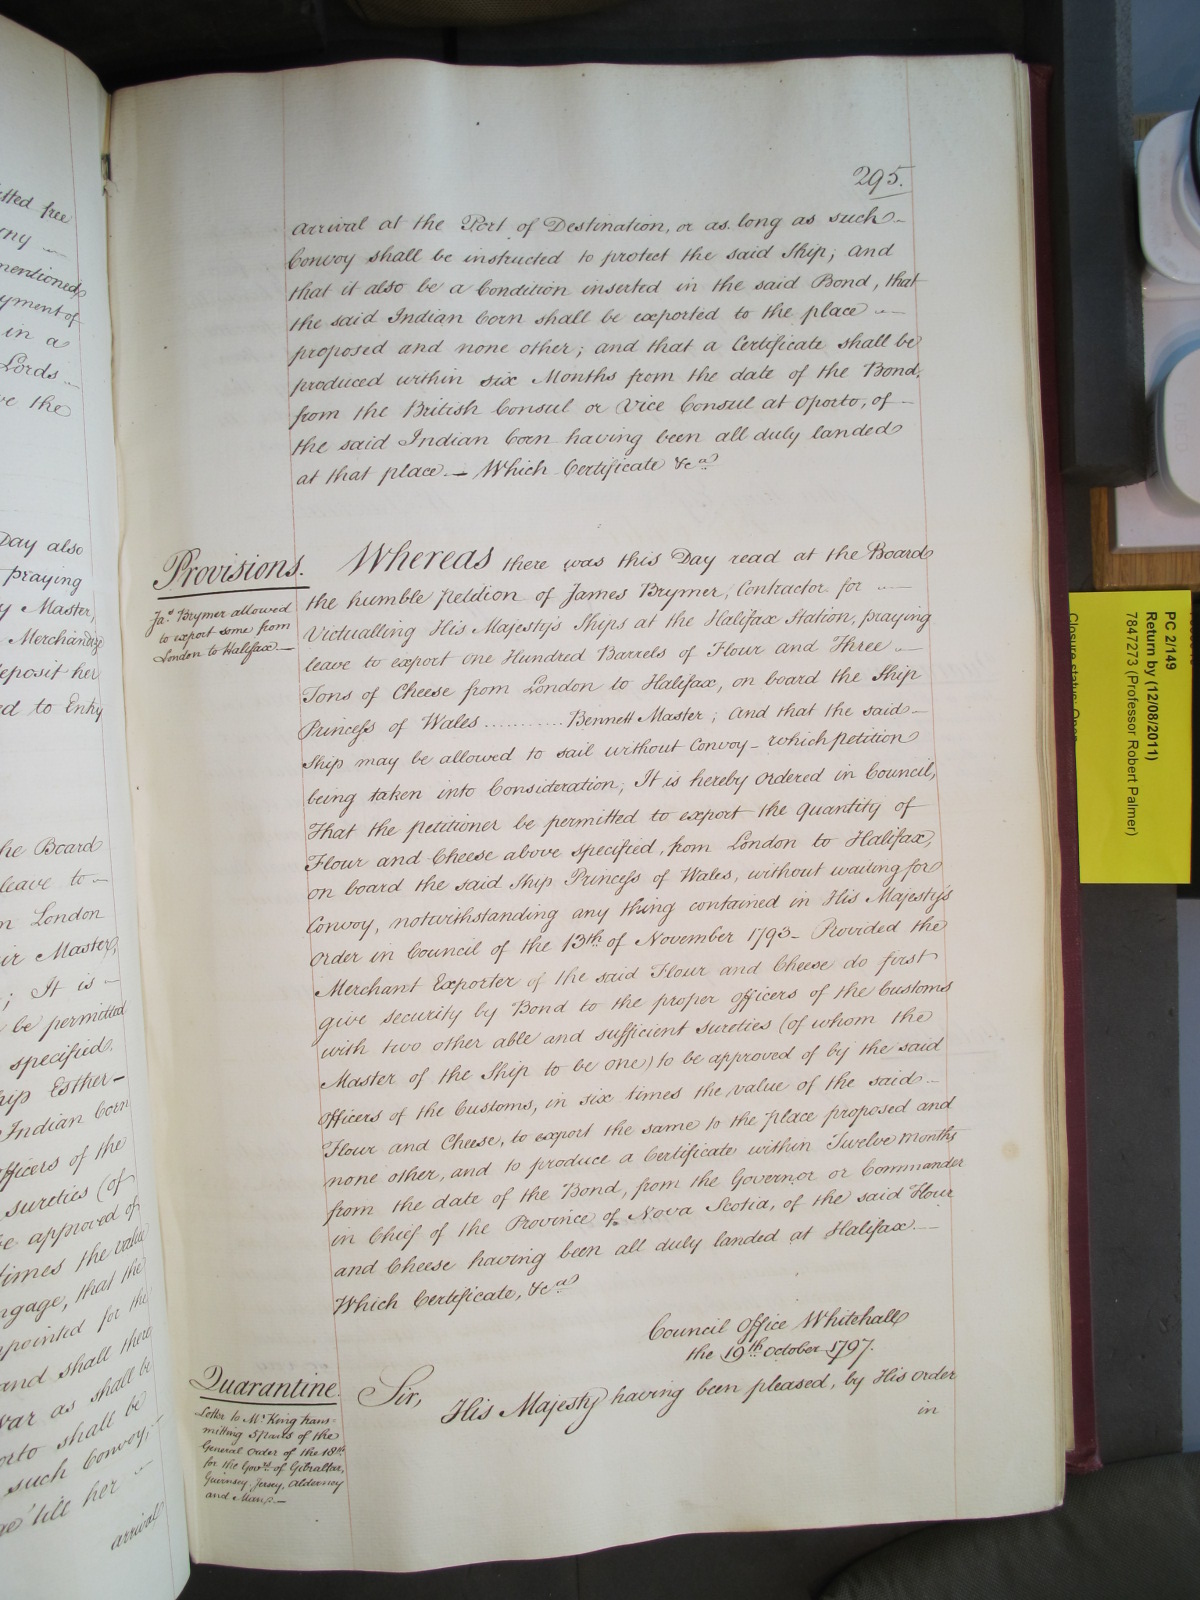 295.
arrival at the Port of Destination, or as long as such
Convoy shall be instructed to protect the said Ship; and
that it also be a Condition inserted in the said Bond, that
the said Indian Corn shall be exported to the place
proposed and none other; and that a Certificate shall be
produced within six Months from the date of the Bond,
from the British Consul or Vice Consul at Oporto, of
the said Indian Corn having been all duly landed
at that place — Which Certificate &ca
Provisions.
Jas. Brymer allowed
to export some from
London to Halifax —
Whereas there was this Day read at the Board
the humble Petition of James Brymer, Contractor for
Victualling His Majesty's Ships at the Halifax Station, praying
leave to export one Hundred Barrels of Flour and Three
Tons of Cheese from London to Halifax, on board the Ship
Princess of Wales ........... Bennett Master; and that the said
Ship may be allowed to sail without Convoy – which petition
being taken into Consideration; It is hereby ordered in Council,
That the petitioner be permitted to export the quantity of
Flour and Cheese above specified, from London to Halifax,
on board the said Ship Princess of Wales, without waiting for
Convoy, notwithstanding any thing contained in His Majesty's
Order in Council of the 13th of November 1793 – Provided the
Merchant Exporter of the said Flour and Cheese do first
give security by Bond to the proper officers of the Customs
with two other able and sufficient sureties (of whom the
Master of the Ship to be one) to be approved of by the said
Officers of the Customs, in six times the value of the said
Flour and Cheese, to export the same to the place proposed and
none other, and to produce a Certificate within Twelve months
from the date of the Bond, from the Governor or Commander
in Chief of the Province of Nova Scotia, of the said Flour
and Cheese having been all duly landed at Halifax —
Which Certificate, &ca
Council Office Whitehall
the 19th October 1797.
Quarantine.
Letter to Mr King trans=
mitting 5 Pars of the
General Order of the 18th
for the Govrs of Gibraltar,
Guernsey, Jersey, Alderney
and Man. —
Sir,
His Majesty having been pleased, by His order
in
itted free
mentioned
yment of
in a
Lords
the
Day also
praying
Master,
Merchandize
deposit her
ed to Entry
the Board
leave to
London
Master,
; It is
be permitted
specified.
Ship Esther
Indian Corn
officers of the
sureties (of
be approved of
times the value
engage, that the
appointed for the
and shall there
War as shall be
Oporto shall be
such Convoy,
till her
arrival
PC 2/149
Return by (12/08/2011)
7847273 (Professor Robert Palmer)
Closure status: Open